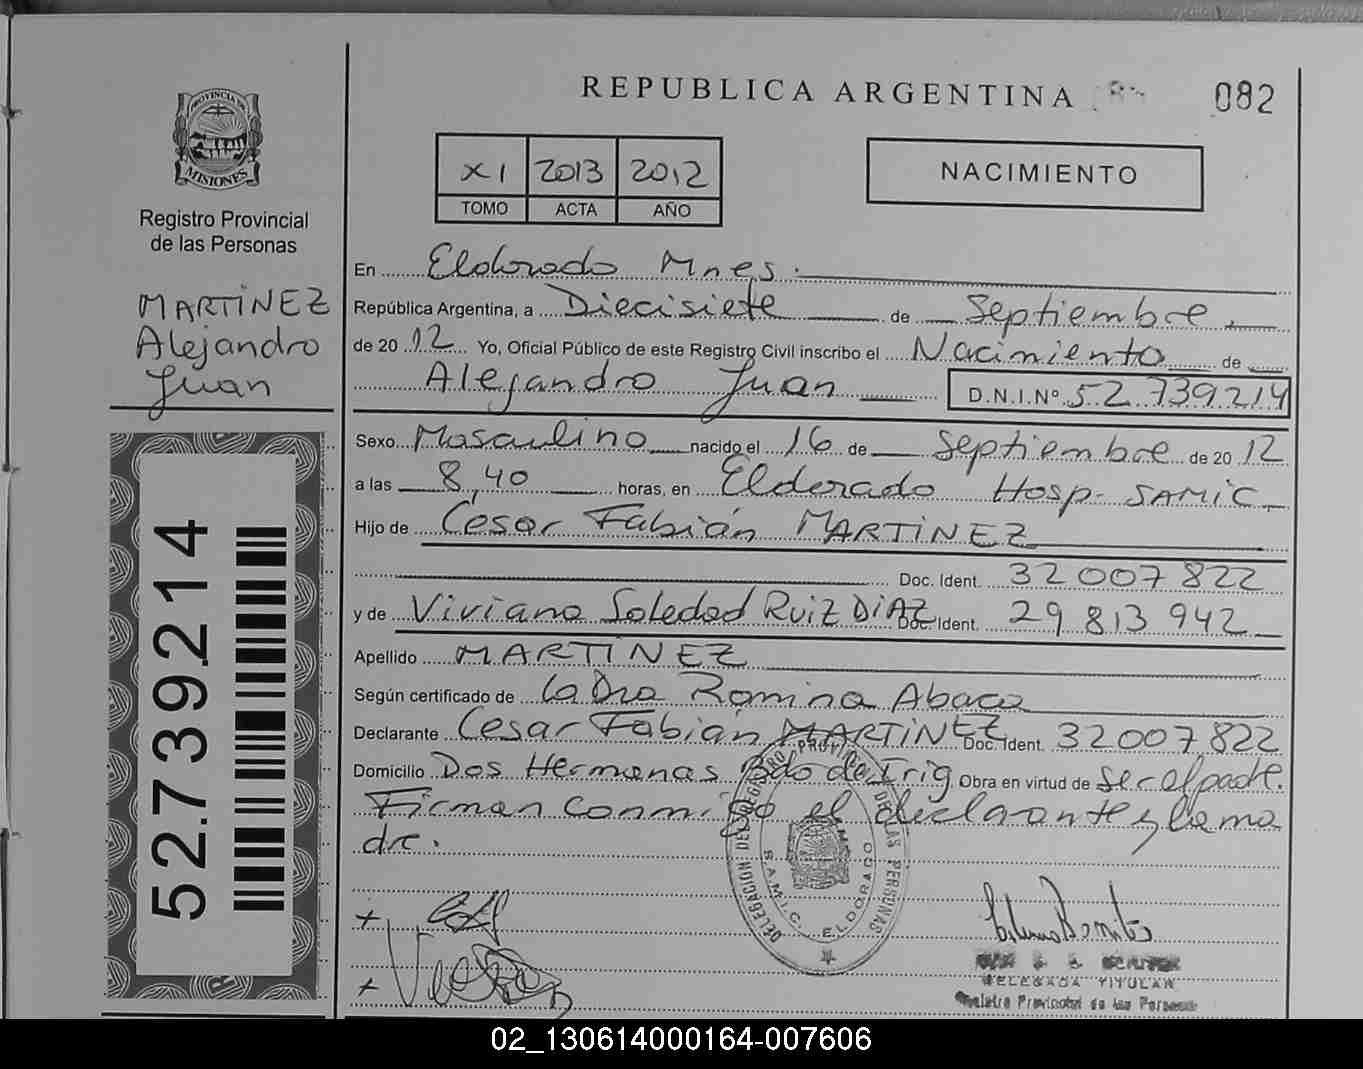 REPUBLICA ARGENTINA
082
PROVINCIA DE
MISIONES
Registro Provincial
de las Personas
MARTINEZ
Alejandro
Juan
52.739.214
XI 2013 2012
TOMO ACTA AÑO
NACIMIENTO
En Eldorado Mnes.
República Argentina, a Diecisiete de Septiembre
de 20 12 Yo, Oficial Público de este Registro Civil inscribo el Nacimiento de
Alejandro Juan D.N.I.Nº 52.739214
Sexo Masculino nacido el 16 de Septiembre de 20 12
a las 8,40 horas, en Eldorado Hosp- SAMIC
Hijo de Cesar Fabián MARTINEZ
Doc. Ident. 32 007 822
y de Viviana Soledad RUIZ DIAZ Doc. Ident. 29 813 942
Apellido MARTINEZ
Según certificado de la Dra Romina Abaca
Declarante Cesar Fabián MARTINEZ Doc. Ident. 32 007 822
Domicilio Dos Hermanas Bdo de Irig Obra en virtud de ser el padre.
Firman conmigo el declarante y la ma
dre.
DELEGACION DEL REGISTRO PROVINCIAL DE LAS PERSONAS
S.A.M.I.C. ELDORADO
DELEGADA TITULAR
Registro Provincial de las Personas
02_130614000164-007606